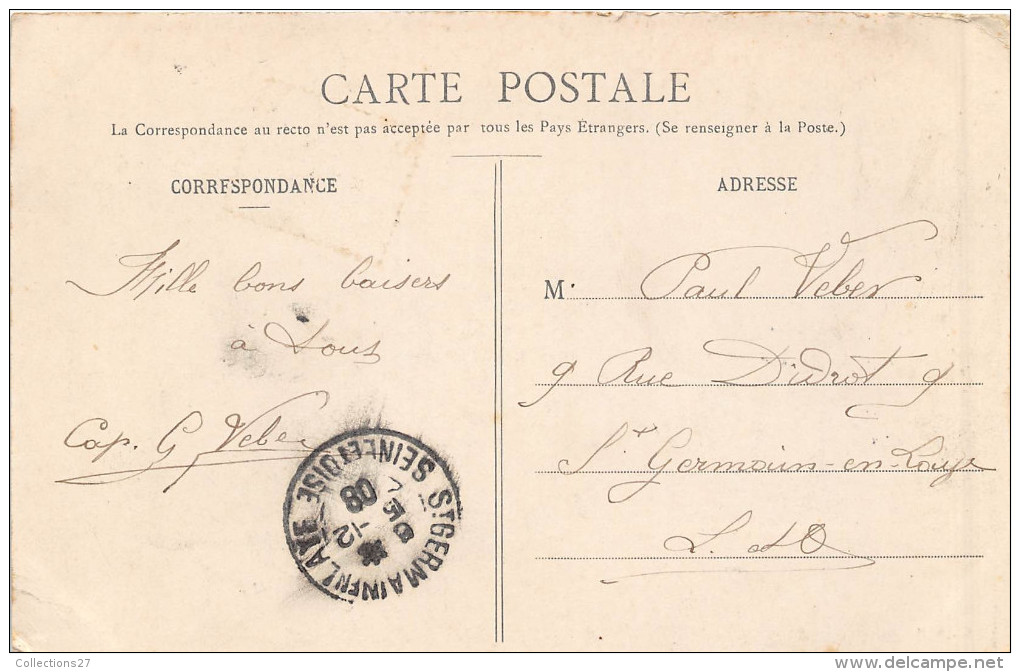 CARTE POSTALE
La Correspondance au recto n'est pas acceptée par tous les Pays Étrangers. (Se renseigner à la Poste.)
CORRESPONDANCE
Mille bons baisers
à tous
Cap. G Veber
ADRESSE
M. Paul Veber
9 Rue Diderot 9
St Germain-en-Laye
S. et O
ST GERMAIN EN LAYE SEINE ET OISE
08
Collections27
www.delcampe.net